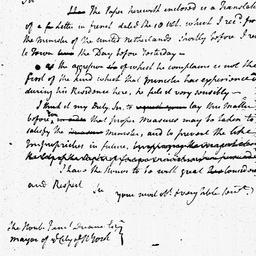 Sir
The Paper herewith enclosed is a Translation
of a letter in french dated the 10 Inst. which I recd. from
the Minister of the united Netherlands shortly before I
Town the Day before Yesterday —
as the aggression of which he complains is not the
first of the kind which that minister has experienced
during his Residence here, he feels it very sensibly —
I think it my Duty Sir to lay this Matter
before you that proper Measures may be taken to
satisfy the Minister, and to prevent the like
Improprieties in future,
I have the Honor to be with great
and Respect Sir
your most obt. & very hble Servt.
The Honb. James Duane Esq
mayor of ye City of N York